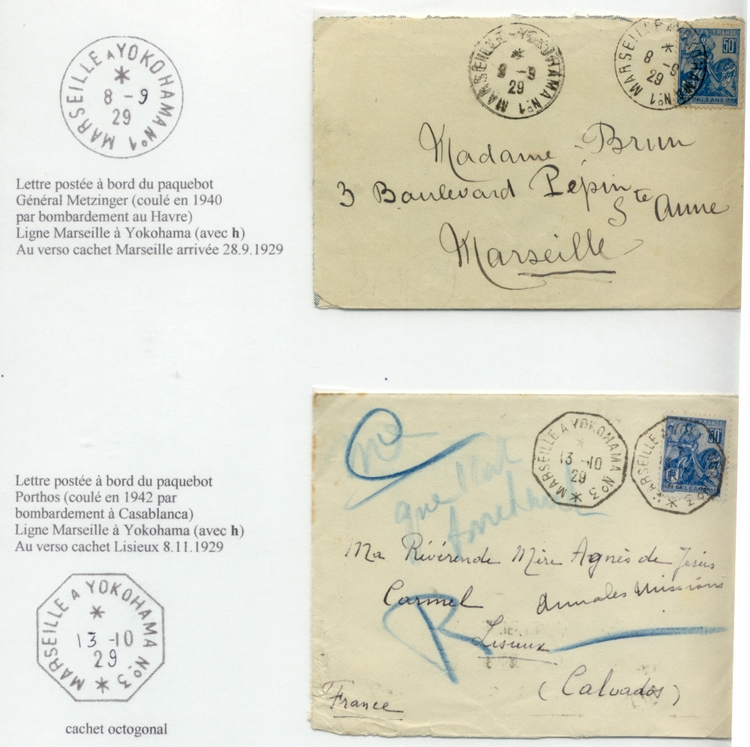 MARSEILLE A YOKOHAMA N°1
*
8 -9
29
Lettre postée à bord du paquebot
Général Metzinger (coulé en 1940
par bombardement au Havre)
Ligne Marseille à Yokohama (avec h)
Au verso cachet Marseille arrivée 28.9.1929
MARSEILLE A YOKOHAMA N°1
*
8 -9
29
MARSEILLE A YOKOHAMA N°1
*
8 -9
29
50
ORLEANS
Madame Brun
3 Boulevard Pépin
Ste Anne
Marseille
Lettre postée à bord du paquebot
Porthos (coulé en 1942 par
bombardement à Casablanca)
Ligne Marseille à Yokohama (avec h)
Au verso cachet Lisieux 8.11.1929
MARSEILLE A YOKOHAMA N°3
*
13 -10
29
*
cachet octogonal
MARSEILLE A YOKOHAMA N°3
*
13 -10
29
*
MARSEILLE A YO
N°3
*
50
Ma Révérende Mère Agnès de Jésus
Carmel
R
Lisieux
(Calvados)
France